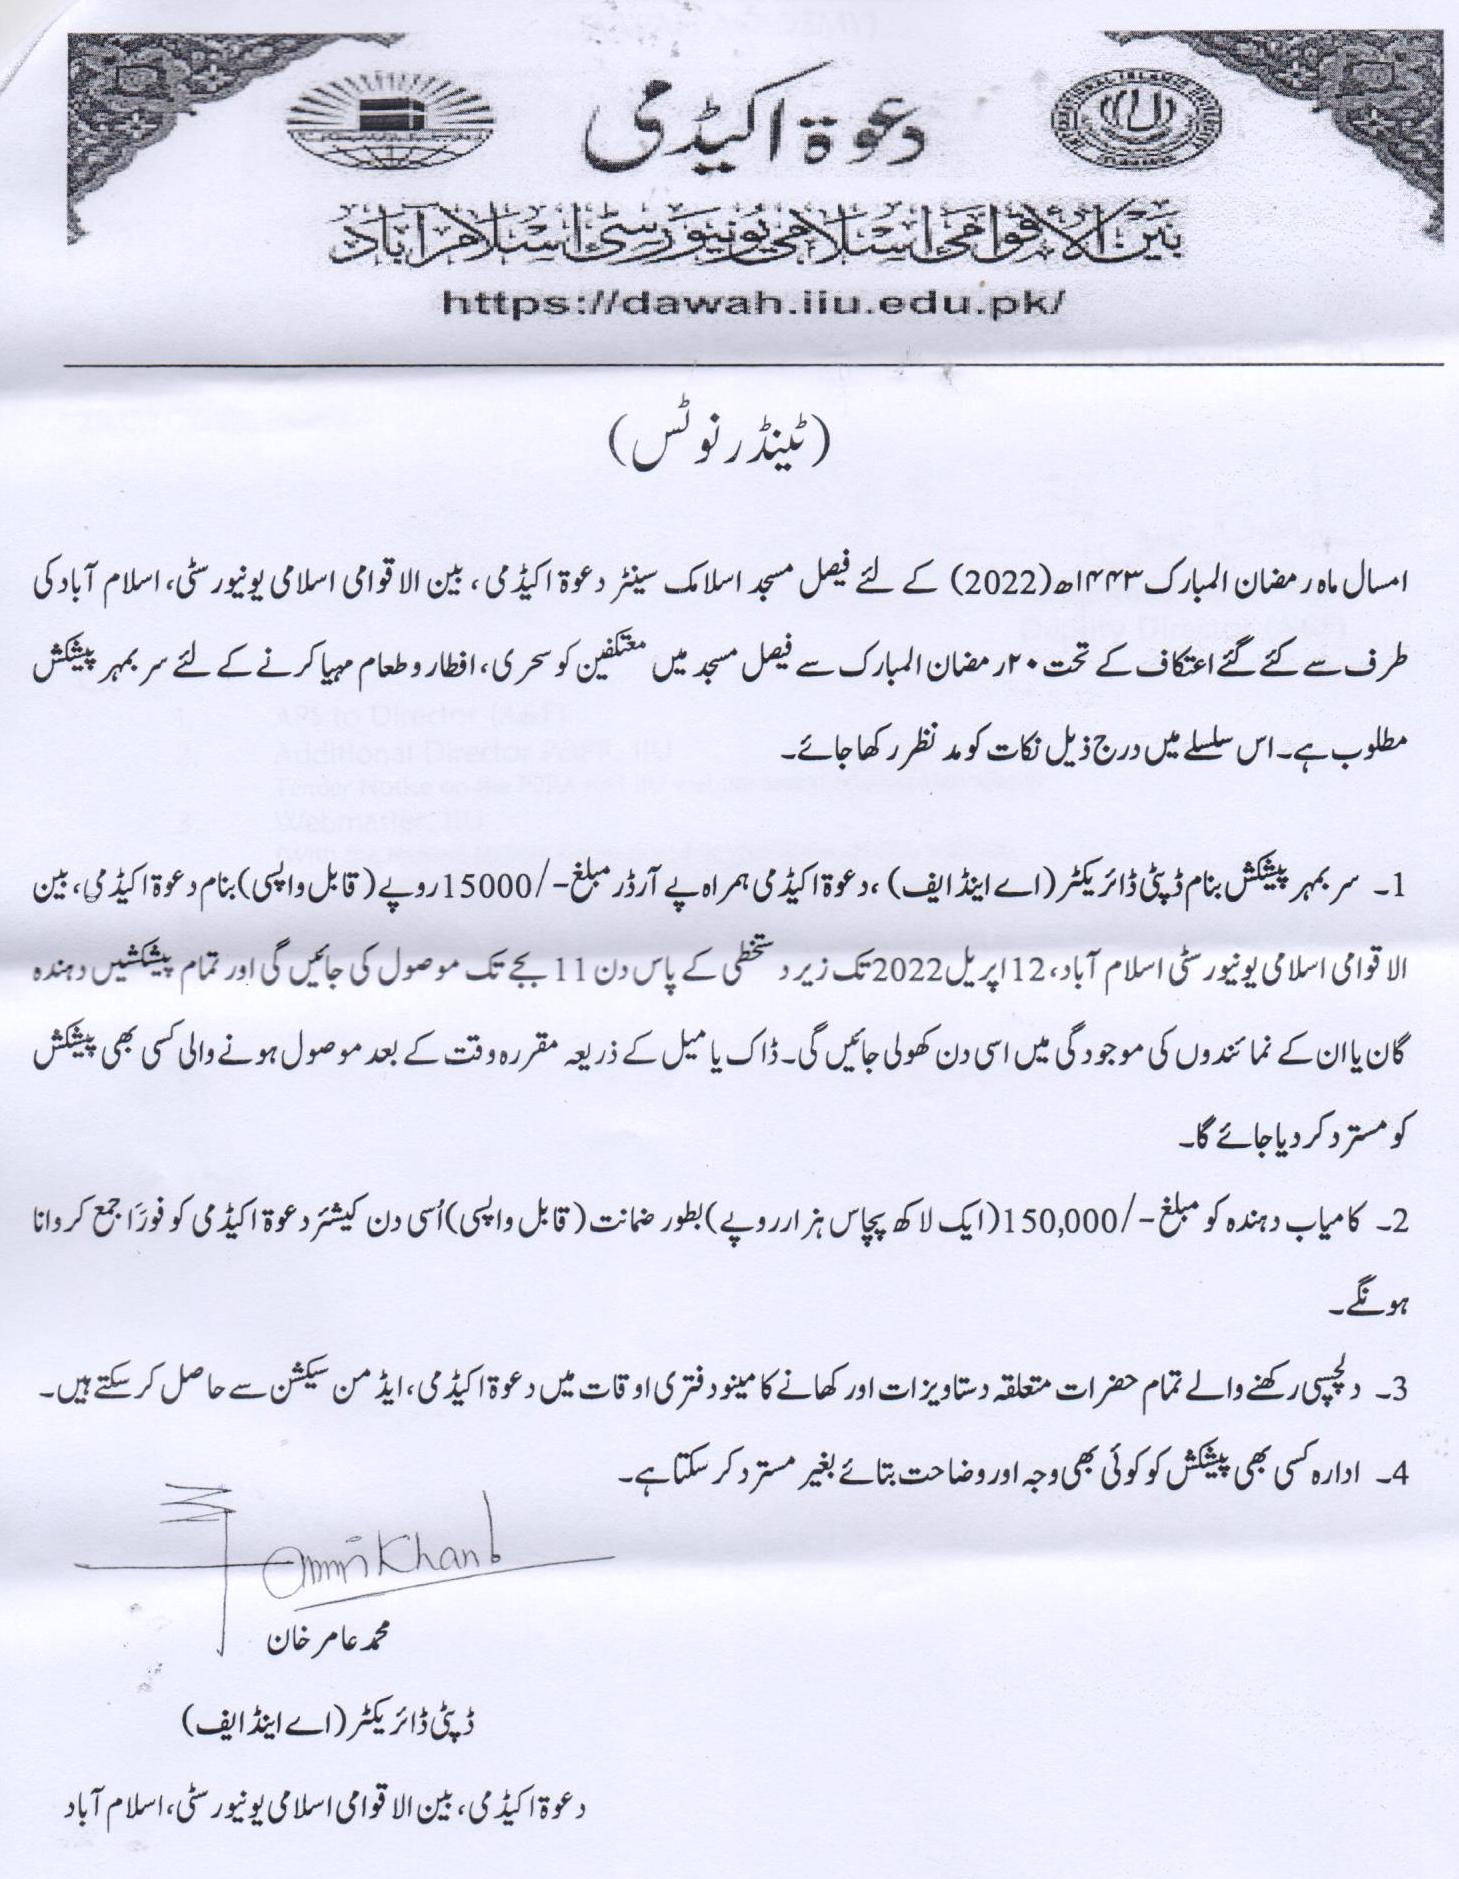 دعوۃ اکیڈمی
بین الاقوامی اسلامی یونیورسٹی اسلام آباد
https://dawah.iiu.edu.pk/
(ٹینڈر نوٹس)
امسال ماہ رمضان المبارک ۱۴۴۳ھ(2022) کے لئے فیصل مسجد اسلامک سینٹر دعوۃ اکیڈمی، بین الاقوامی اسلامی یونیورسٹی، اسلام آباد کی
طرف سے کئے گئے اعتکاف کے تحت ۲۰ رمضان المبارک سے فیصل مسجد میں معتکفین کو سحری، افطار و طعام مہیا کرنے کے لئے سربمہر پیشکش
مطلوب ہے۔ اس سلسلے میں درج ذیل نکات کو مد نظر رکھا جائے۔
1۔ سربمہر پیشکش بنام ڈپٹی ڈائریکٹر (اے اینڈ ایف) ،دعوۃ اکیڈمی ہمراہ پے آرڈر مبلغ -/15000 روپے (قابل واپسی) بنام دعوۃ اکیڈمی، بین
الاقوامی اسلامی یونیورسٹی اسلام آباد، 12 اپریل 2022 تک زیر دستخطی کے پاس دن 11 بجے تک موصول کی جائیں گی اور تمام پیشکشیں دہندہ
گان یا ان کے نمائندوں کی موجودگی میں اسی دن کھولی جائیں گی۔ ڈاک یا میل کے ذریعہ مقررہ وقت کے بعد موصول ہونے والی کسی بھی پیشکش
کو مسترد کر دیا جائے گا۔
2۔ کامیاب دہندہ کو مبلغ -/150,000 (ایک لاکھ پچاس ہزار روپے) بطور ضمانت (قابل واپسی) اُسی دن کیشئر دعوۃ اکیڈمی کو فوراً جمع کروانا
ہونگے۔
3۔ دلچسپی رکھنے والے تمام حضرات متعلقہ دستاویزات اور کھانے کا مینو دفتری اوقات میں دعوۃ اکیڈمی، ایڈمن سیکشن سے حاصل کر سکتے ہیں۔
4۔ ادارہ کسی بھی پیشکش کو کوئی بھی وجہ اور وضاحت بتائے بغیر مسترد کر سکتا ہے۔
محمد عامر خان
ڈپٹی ڈائریکٹر (اے اینڈ ایف)
دعوۃ اکیڈمی، بین الاقوامی اسلامی یونیورسٹی، اسلام آباد